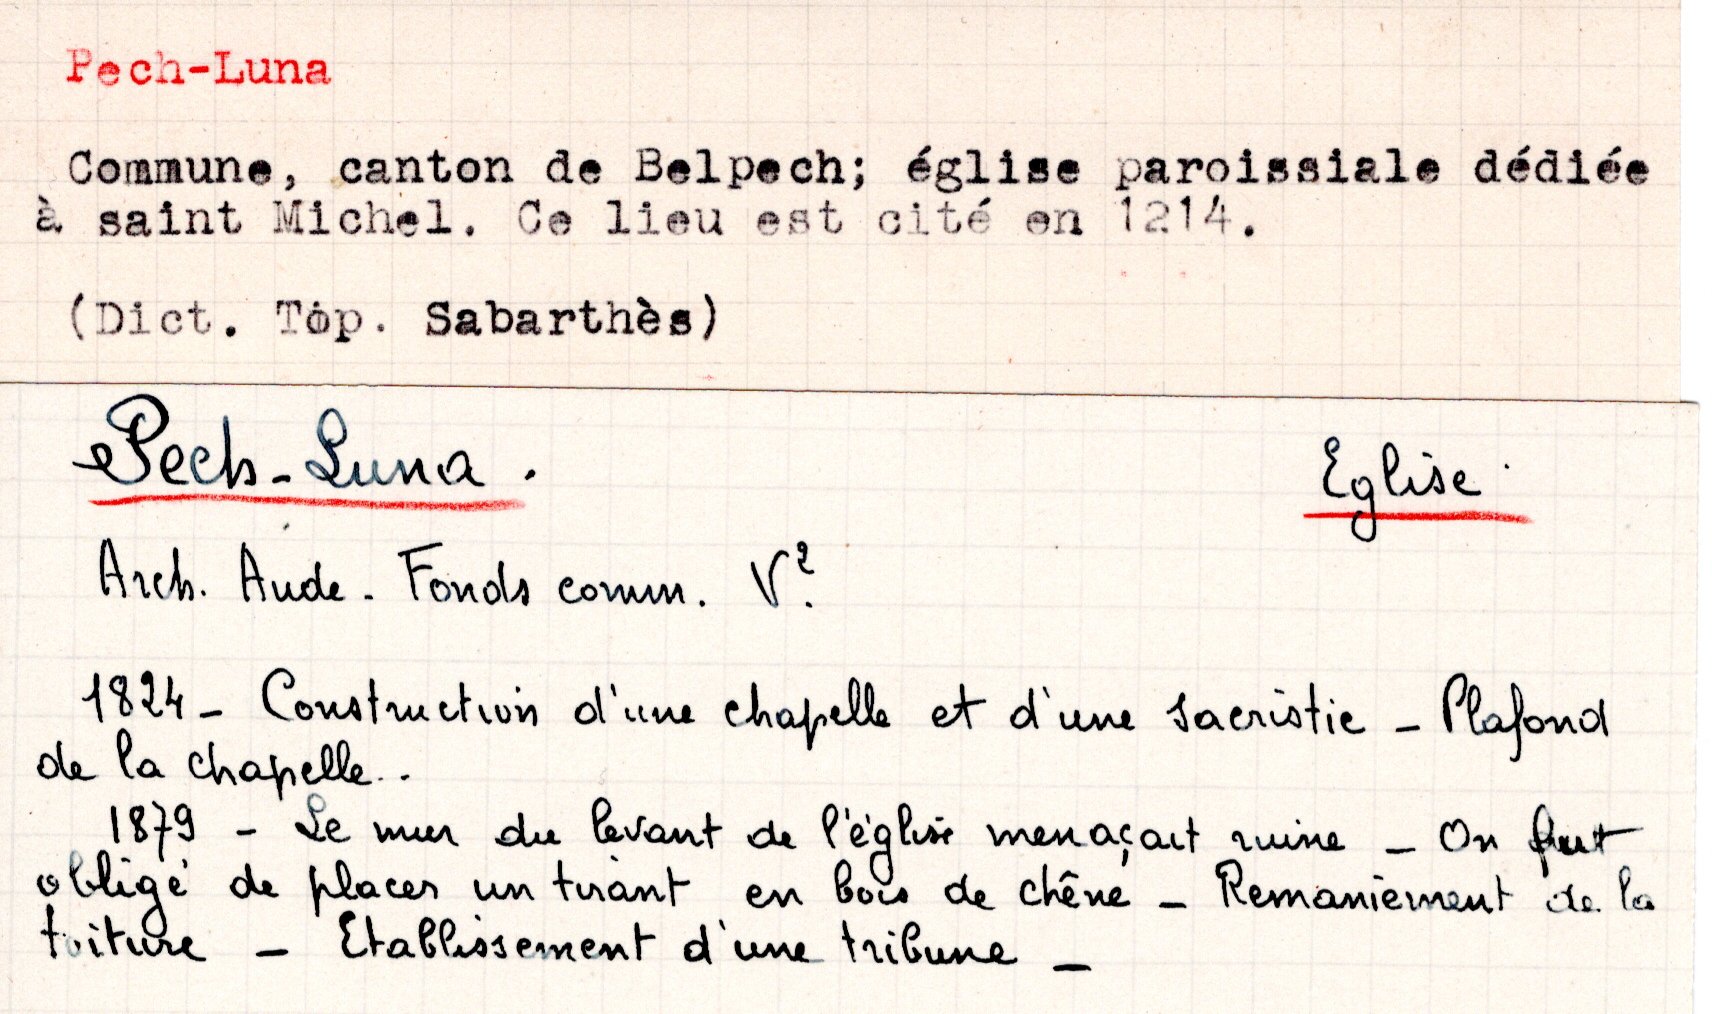 Pech-Luna
Commune, canton de Belpech; église paroissiale dédiée
à saint Michel. Ce lieu est cité en 1214.
(Dict. Top. Sabarthès)
Pech-Luna.
Eglise.
Arch. Aude. Fonds comm. V².
1824 - Construction d'une chapelle et d'une sacristie - Plafond
de la chapelle..
1879 - Le mur du levant de l'église menaçait ruine - On fut
obligé de placer un tirant en bois de chêne - Remaniement de la
toiture - Etablissement d'une tribune -